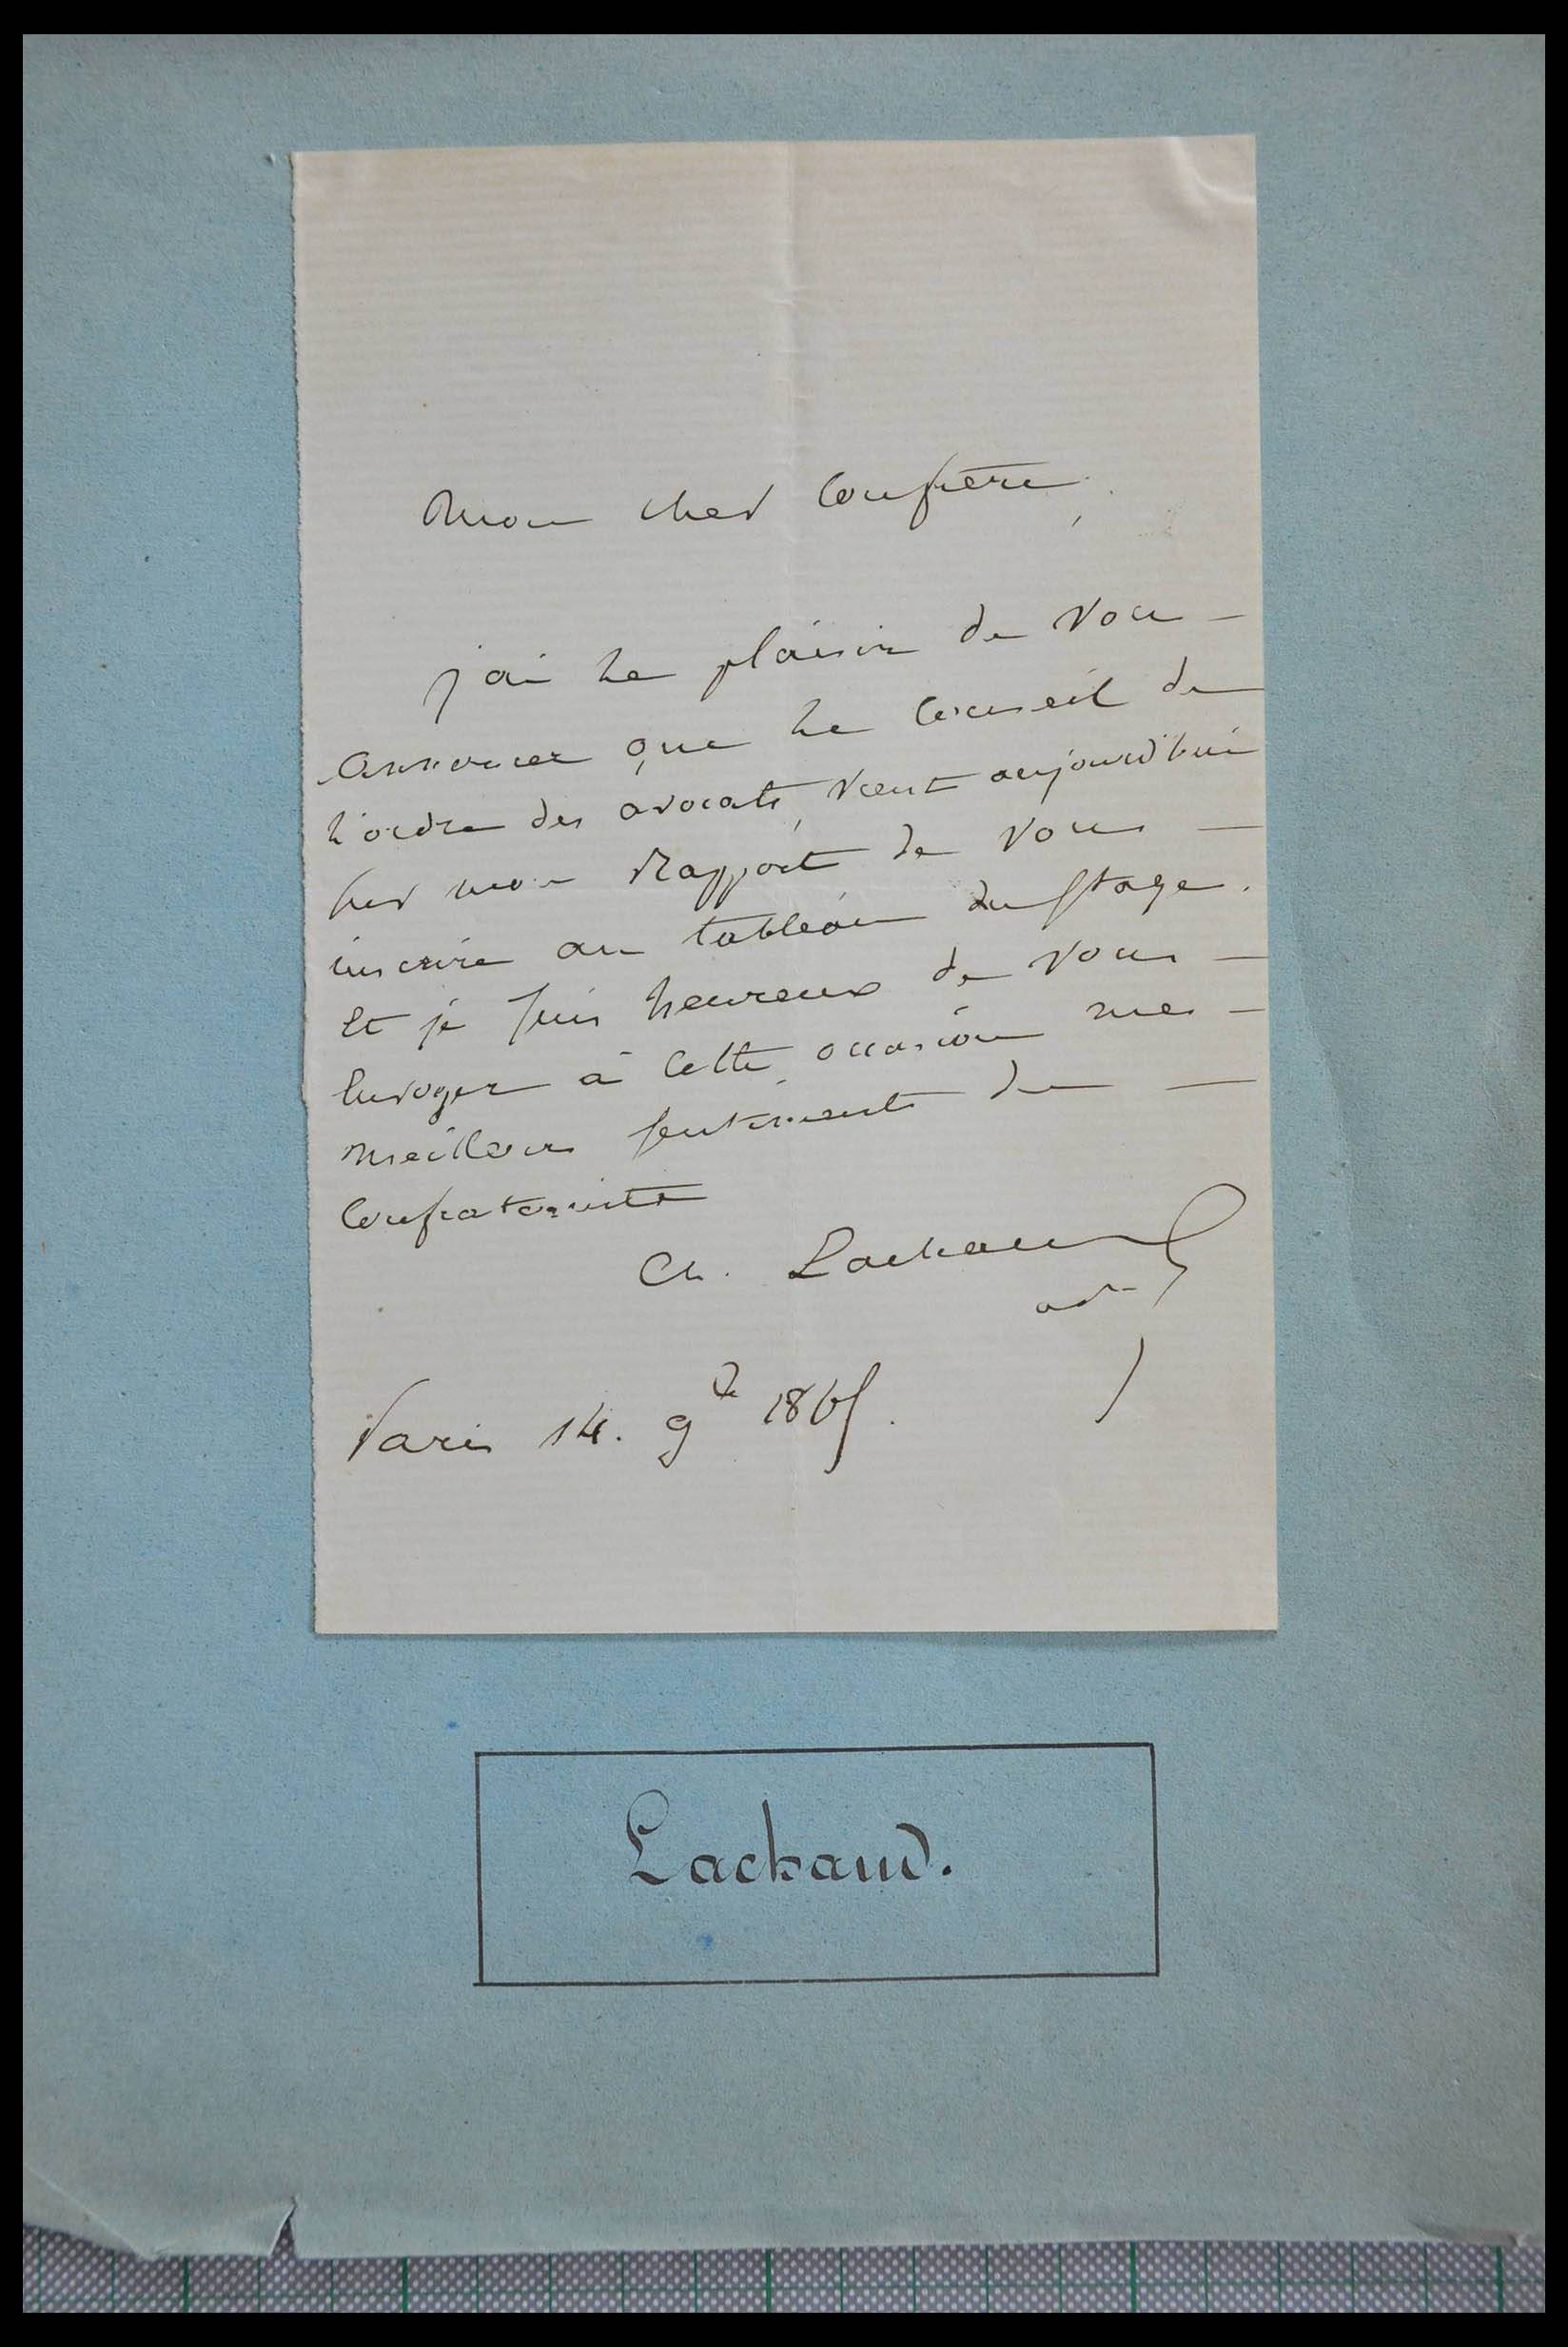 Mon cher Confrère,
j'ai le plaisir de vous —
annoncer que le Conseil de
l'ordre des avocats, vient aujourd'hui
sur mon Rapport de vous —
inscrire au tableau du stage.
Et je suis heureux de vous —
envoyer à cette occasion mes —
meilleurs sentiments de —
Confraternité
Ch. Lachaud
av
Paris 14. 9bre 186
Lachaud.